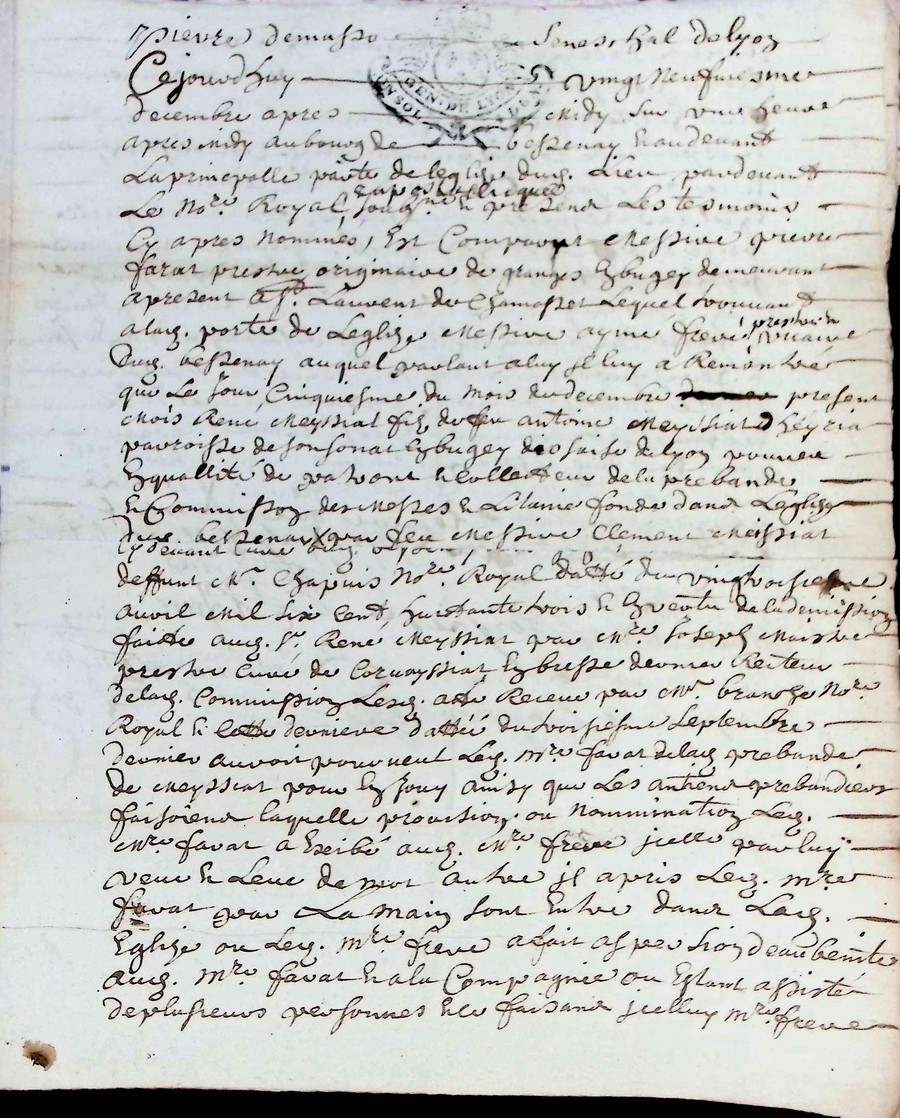 Pierre demasso Senes chal de lyon
GEN. DE LYON
Ce jourd huy vingt neufviesme
decembre apres midy sur une heure
apres midy au bourg de bessenay et au devant
la principalle porte de leglize dud. lieu pardevant
apostollicque
Le no.re Royal soubz.né et presend les tesmoins
Cy apres nommés, Est Comparut Messire pierre
farat prestre originaire de granges en bugey demeurant
apresent a S.t Laurent de Chamosset Lequel trouvant
a lad. porte de Leglize Messire aymé frere, prestre vicaire
dud. bessenay auquel parlant a luy jl luy a Remontré
que Le Jour, Cinquiesme du mois de decembre present
mois René Meyssiat filz de feu antoine Meyssiat d'heyria
parroisse de sonsonat en bugey diosaise de lyon
En quallité de patront et collecteur de la prebande
et Commission de Messes et Litanie fondé dans Leglize
dud. bessenay par feu Messire Clement Meissiat
Cy devant Curé
deffunt M.r Chapuis No.re Royal datté du vingtroisiesme
avril Mil six cent, huictante trois et En vertu de la demission
faitte aud. S.r René Meyssiat par M.re Joseph Maistre
prestre Curé de Corvayssiat En bresse dernier Recteur
de lad. Commission Lesq. a été Receue par M.r No.re
Royal et cette derniere dattéé du troisiesme Septembre
dernier auroit pourveut Led. M.re farat de lad. prebande
de Meyssiat pour En Jouy ainsy que Les antiens prebandiers
faisoiend laquelle provision ou nommination Led.
M.re farat a Exibé aud. M.re frere jcelle par luy
veue et Leue de mot autre jl apris Led. M.re
farat par La main sont Entré dans Lad.
Eglize ou Led. M.re frere a fait aspersion d'eau benitte
aud. M.re farat et a la Compagnie ou Estant assisté
de plusieurs personnes Et ce faisand jcelluy M.re frere